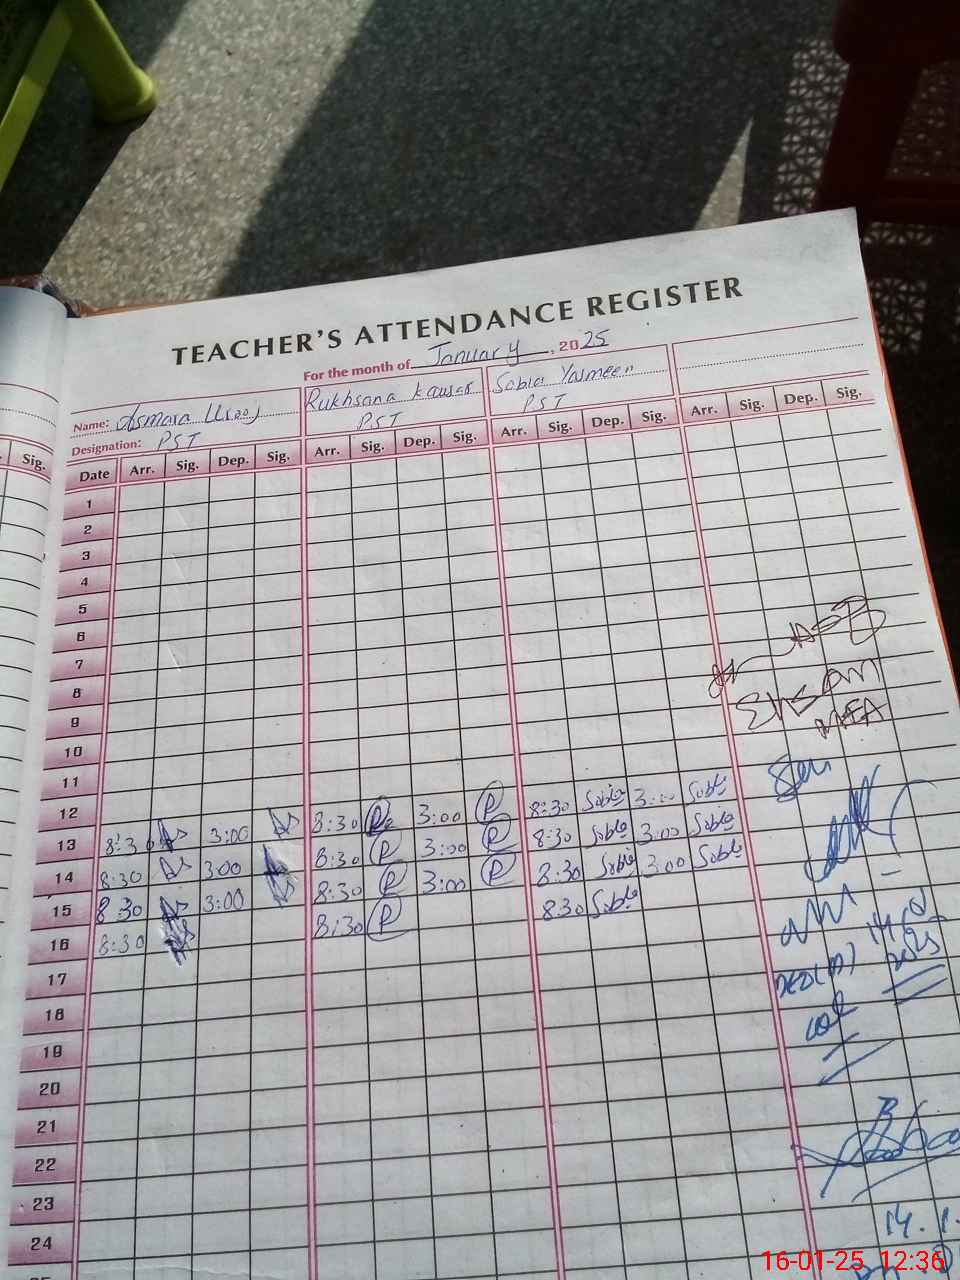 TEACHER'S ATTENDANCE REGISTER
For the month of January, 2025
Name: Asmara Urooj Rukhsana Kausar Sobia Yasmeen
Designation: PST PST PST
Sig.
Date Arr. Sig. Dep. Sig. Arr. Sig. Dep. Sig. Arr. Sig. Dep. Sig. Arr. Sig. Dep. Sig.
1
2
3
4
5
6
7
8
9
10
11
12
13 8:30 3:00 8:30 P 3:00 P 8:30 Sobia 3:00 Sobia
14 8:30 3:00 8:30 P 3:00 P 8:30 Sobia 3:00 Sobia
15 8:30 3:00 8:30 P 3:00 P 8:30 Sobia 3:00 Sobia
16 8:30 8:30 P 8:30 Sobia
17
18
19
20
21
22
23
24
Ehsan
MEA
2025
14.1.
16-01-25 12:36